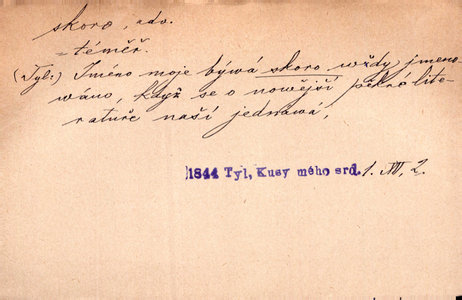 skoro, adv.
= téměř.
(Tyl:) Iméno moje bývá skoro wždy jmeno-
wáno, když se o nowější pěkné lite-
ratuře naší jednawá,
1844 Tyl, Kusy mého srd. 1. XII, 2.